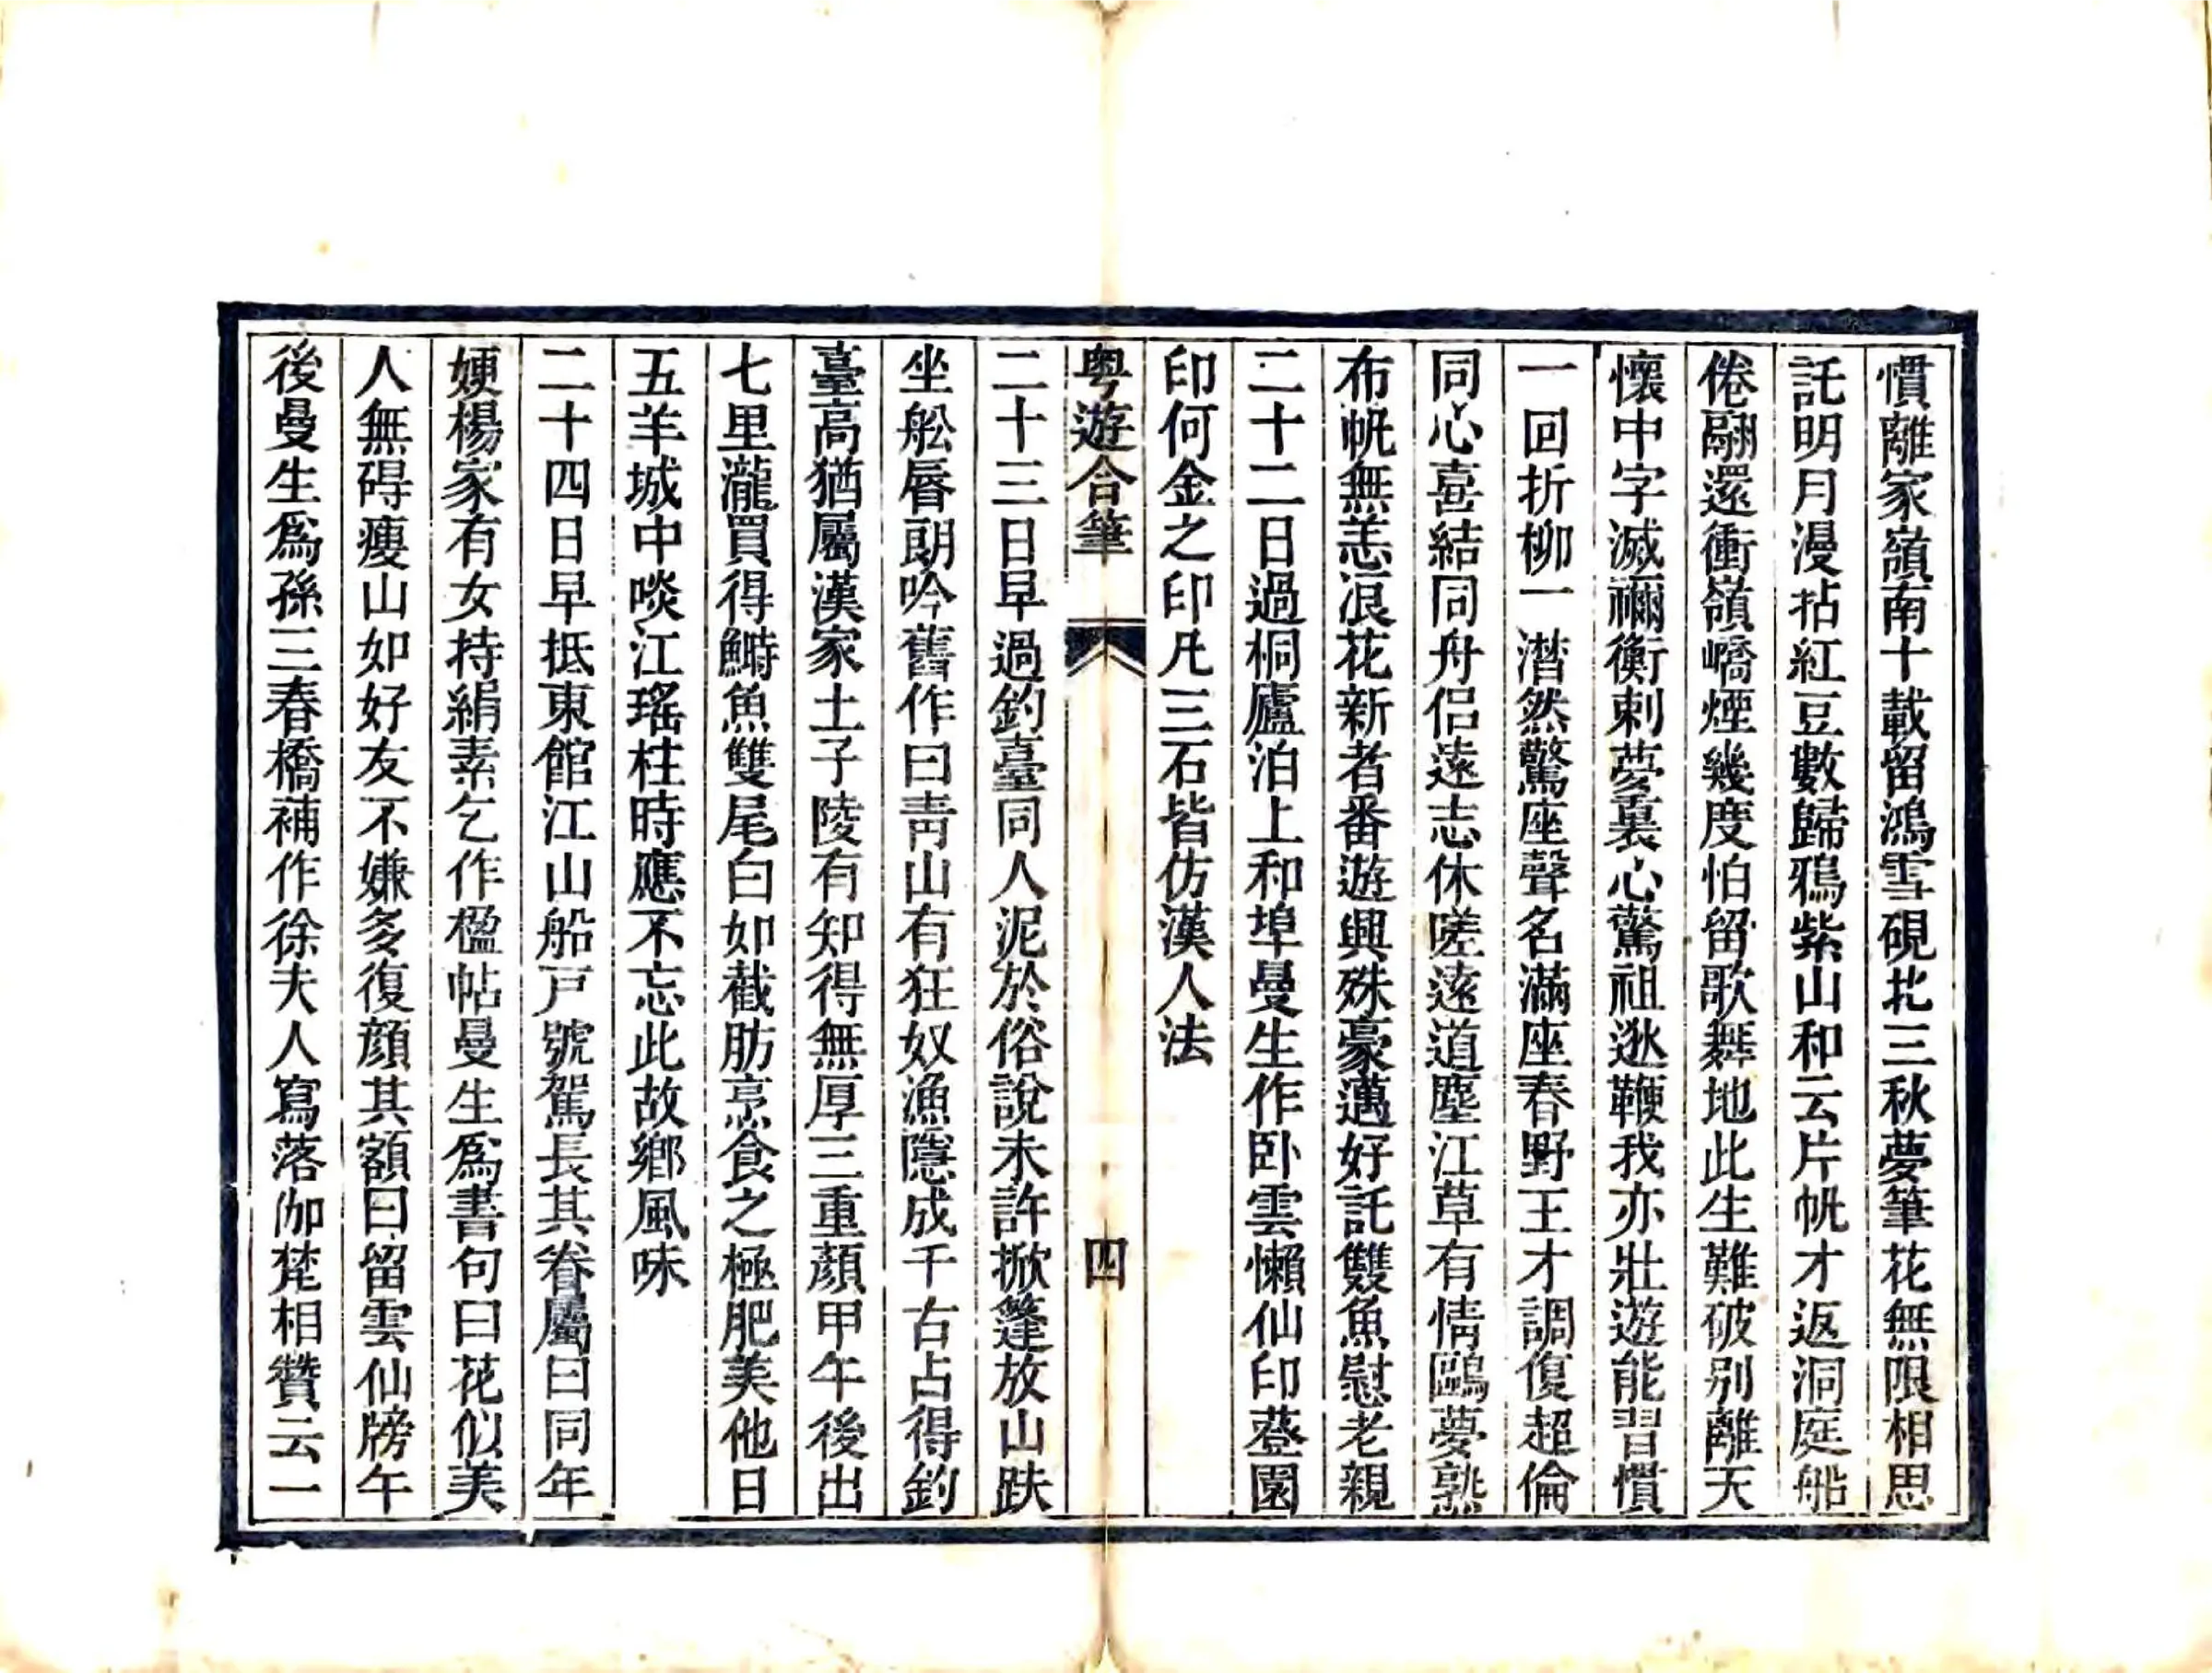 慣離家嶺南十載留鴻雪硯北三秋夢筆花無限相思
託明月漫拈紅豆數歸鴉紫山和云片帆才返洞庭船
倦翮還衝嶺嶠煙幾度怕留歌舞地此生難破别離天
懷中字滅禰衡刺夢裏心驚祖逖鞭我亦壯遊能習慣
一回折柳一潸然驚座聲名滿座春野王才調復超倫
同心喜結同舟侣遠志休嗟遠道塵江草有情鷗夢熟
布帆無恙浪花新者番遊興殊豪邁好託雙魚慰老親
二十二日過桐廬泊上和埠曼生作卧雲懶仙印蔎園
印何金之印凡三石皆仿漢人法
粤遊合筆
四
二十三日早過釣臺同人泥於俗說未許掀篷放山趺
坐舩唇朗吟舊作曰靑山有狂奴漁隱成千古占得釣
臺高猶屬漢家土子陵有知得無厚三重顔甲午後出
七里瀧買得鰣魚雙尾白如截肪烹食之極肥美他日
五羊城中啖江瑤柱時應不忘此故鄉風味
二十四日早抵東館江山船戸號駕長其眷屬曰同年
㛐楊家有女持絹素乞作楹帖曼生爲書句曰花似美
人無碍瘦山如好友不嫌多復顔其額曰留雲仙牓午
後曼生爲孫三春橋補作徐夫人寫落伽梵相贊云一